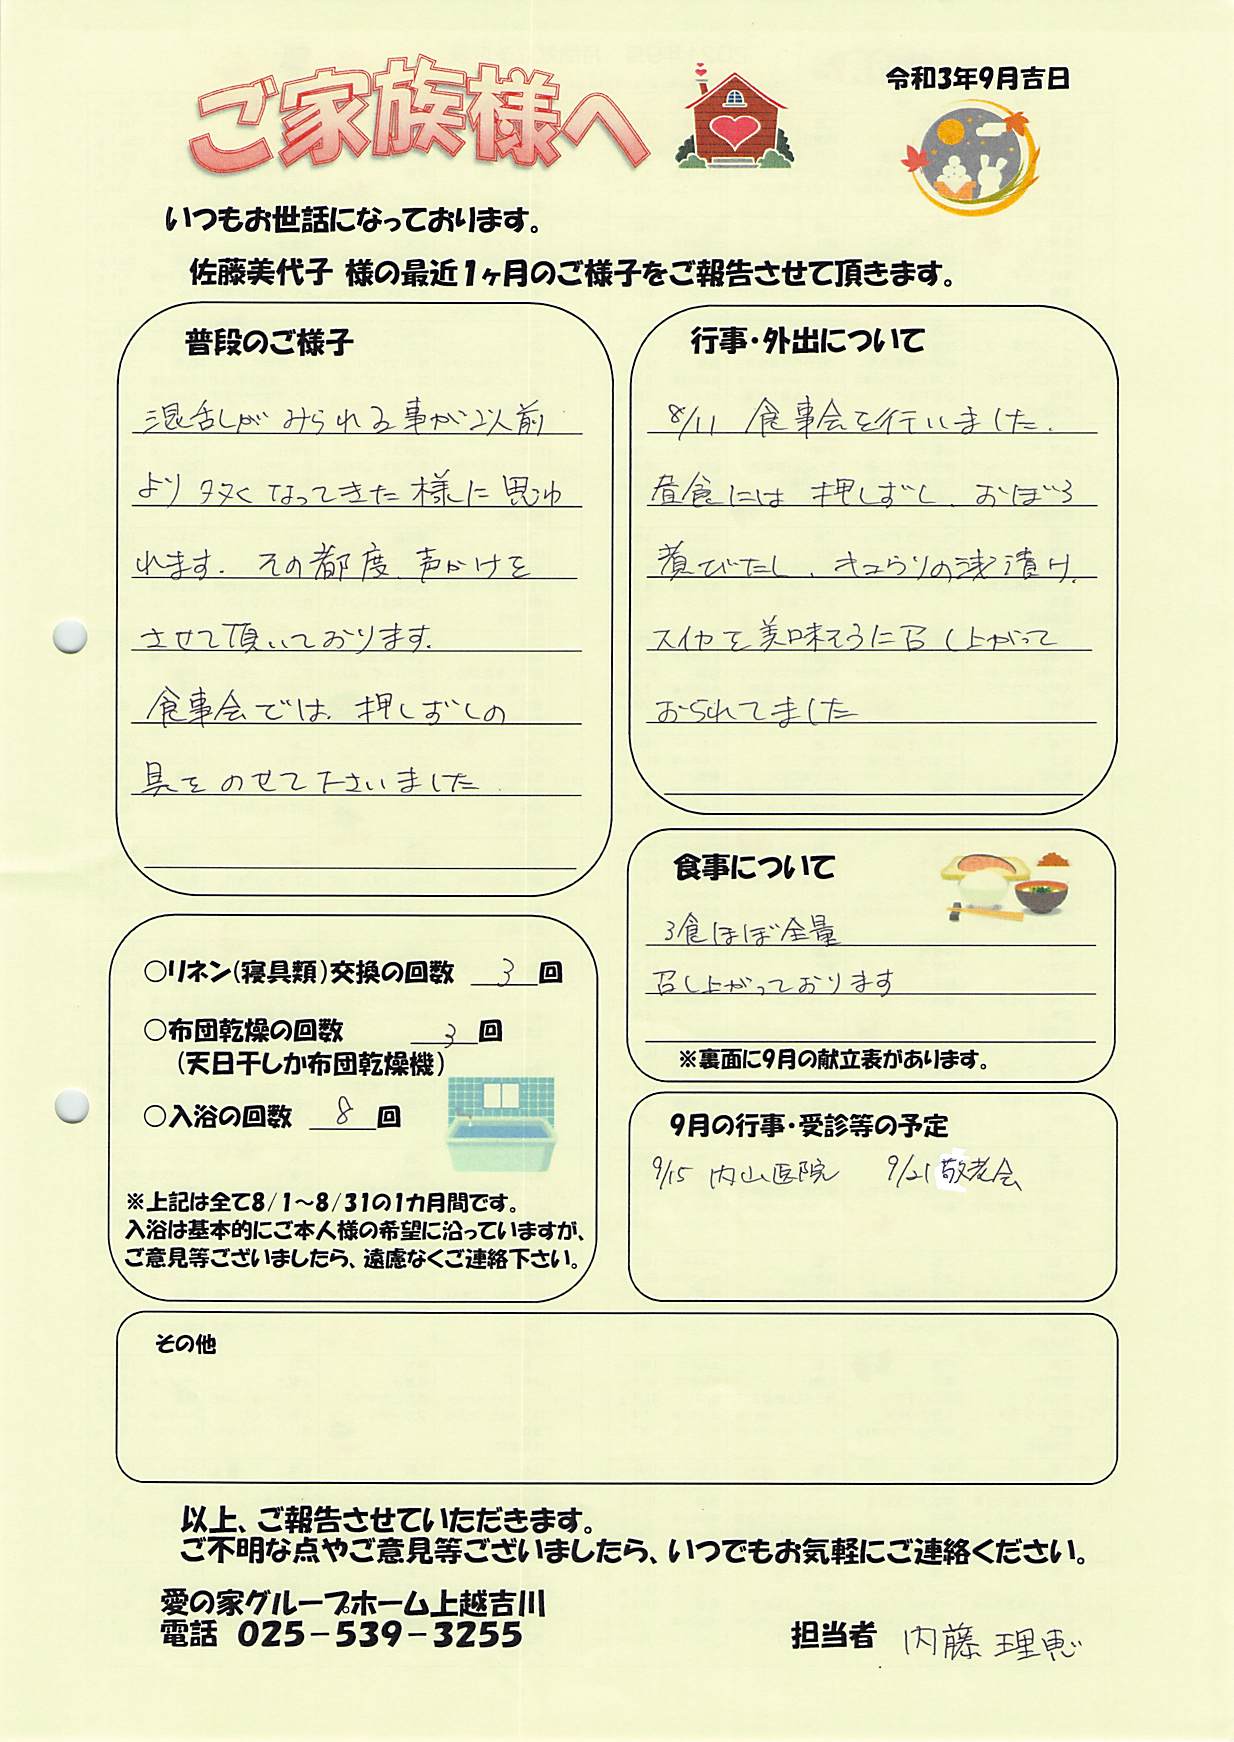 ご家族様へ
令和3年9月吉日
いつもお世話になっております。
佐藤美代子 様の最近1ヶ月のご様子をご報告させて頂きます。
普段のご様子
混乱しがみられる事が以前
より多くなってきた様に思わ
れます。その都度、声かけを
させて頂いております。
食事会では、押しずしの
具をのせて下さいました。
行事・外出について
8/11 食事会を行いました。
昼食には 押しずし、おぼろ
煮びたし、キュウリの浅漬け、
スイカを美味そうに召し上がって
おられてました
食事について
3食ほぼ全量
召し上がっております
※裏面に9月の献立表があります。
○リネン(寝具類)交換の回数 3 回
○布団乾燥の回数 3 回
(天日干しか布団乾燥機)
○入浴の回数 8 回
※上記は全て8/1～8/31の1カ月間です。
入浴は基本的にご本人様の希望に沿っていますが、
ご意見等ございましたら、遠慮なくご連絡下さい。
9月の行事・受診等の予定
9/15 内山医院 9/21 敬老会
その他
以上、ご報告させていただきます。
ご不明な点やご意見等ございましたら、いつでもお気軽にご連絡ください。
愛の家グループホーム上越吉川
電話 025－539－3255
担当者 内藤 理恵